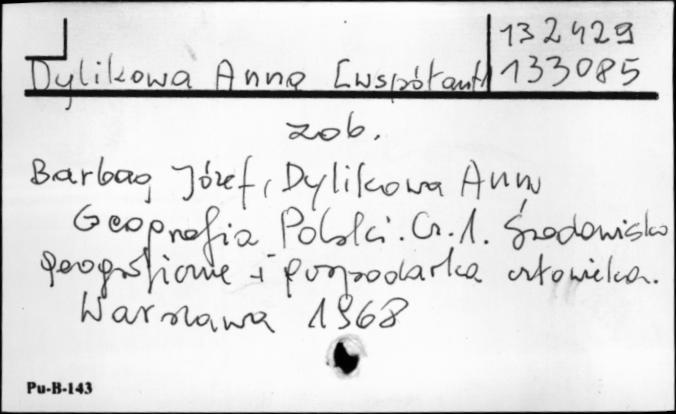 132429
Dylikowa Anna [współaut]
133085
zob.
Barbag Józef, Dylikowa Anna
Geografia Polski. Cz. 1. Środowisko
geograficzne i gospodarka człowieka.
Warszawa 1968
Pu-B-143